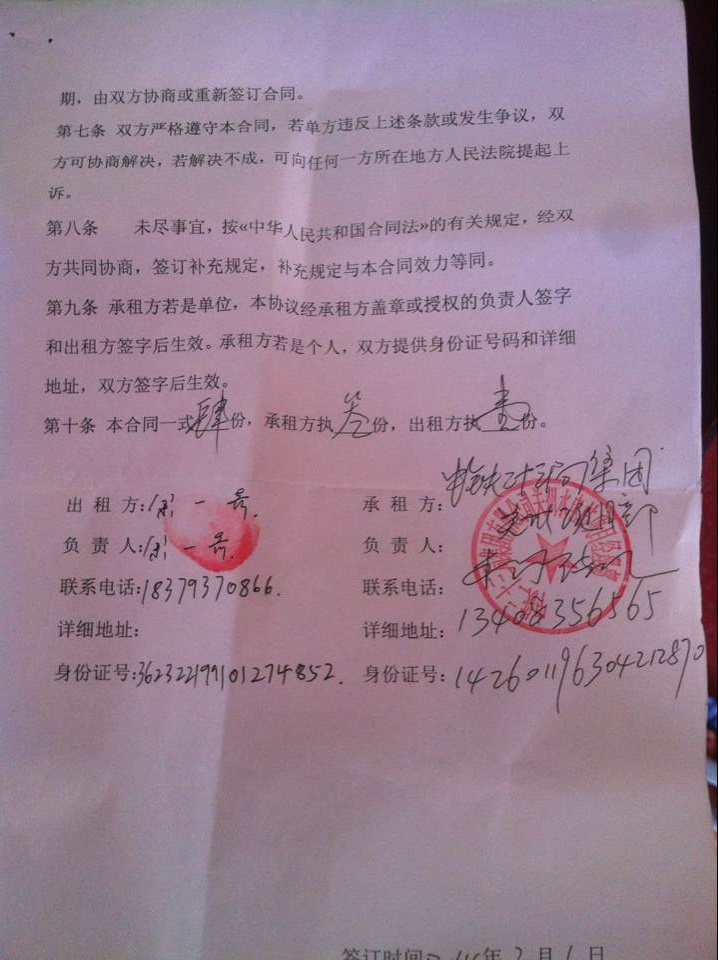 期，由双方协商或重新签订合同。
第七条 双方严格遵守本合同，若单方违反上述条款或发生争议，双
方可协商解决，若解决不成，可向任何一方所在地方人民法院提起上
诉。
第八条 未尽事宜，按«中华人民共和国合同法»的有关规定，经双
方共同协商，签订补充规定，补充规定与本合同效力等同。
第九条 承租方若是单位，本协议经承租方盖章或授权的负责人签字
和出租方签字后生效。承租方若是个人，双方提供身份证号码和详细
地址，双方签字后生效。
第十条 本合同一式肆份，承租方执叁份，出租方执壹份。
出 租 方: 一号.
承 租 方: 集团
项目部
负 责 人: 一号.
负 责 人:
联系电话:18379370866.
联系电话:
13408356565
详细地址:
详细地址:
身份证号:362322199101274852.
身份证号:142601196304212870
签订时间 年 月1日